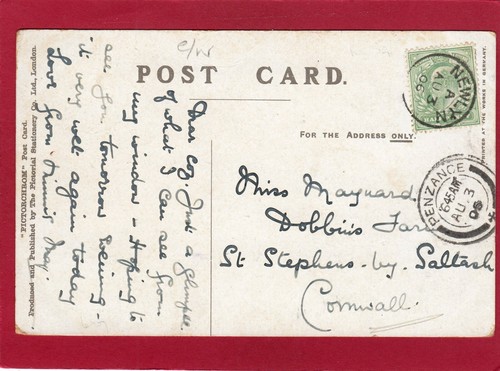 C/W
POST CARD.
FOR THE ADDRESS ONLY.
"PICTORCHROM" Post Card.
Produced and Published by The Pictorial Stationery Co., Ltd., London.
PRINTED AT THE WORKS IN GERMANY.
Dear Coz. Just a glimpse
of what I can see from
my window - Hoping to
see you tomorrow evening -
it very wet again today
Love from Minnie, May.
NEWLYN
A
AU 3
PENZANCE
6.45AM
AU 3
06
Miss Maynard
Dobbin's Farm
St Stephens-by-Saltash
Cornwall.